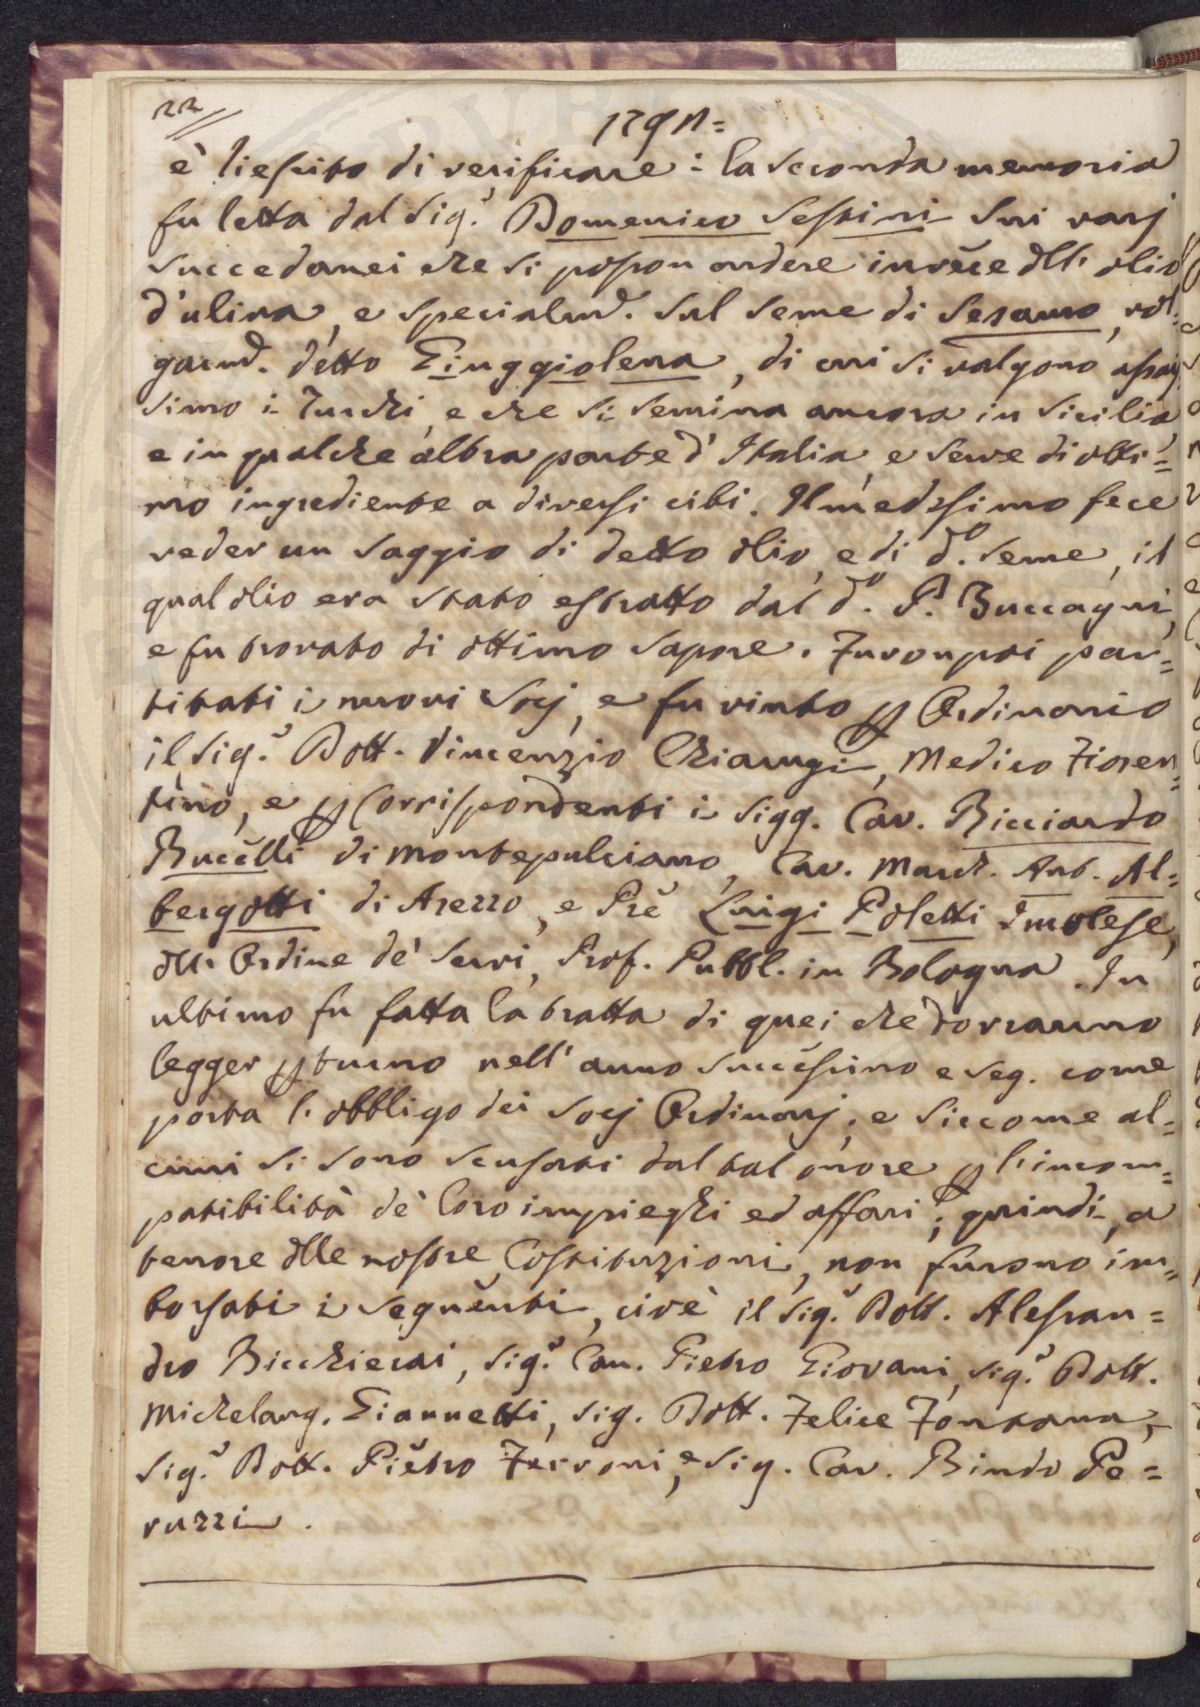 22
179
è riescito di verificare: la seconda memoria
fu letta dal Sig.r Domenico Sestini Sui varj
succedanei che si posson ardere invece dll' olio
d'uliva, e specialm.e sul seme di Sesamo, vol=
garm.e detto Giuggiolena, di cui si valgono assais
simo i Turchi, e che si semina ancora in Sicilia
e in qualche altra parte d'Italia, e serve di otti=
mo ingrediente a diversi cibi. Il medesimo fece
veder un saggio di detto olio, e di d.o seme, il
qual olio era stato estratto dal d.o P. Buccagni,
e fu trovato di ottimo sapore. Furon poi par=
titati i nuovi Socj, e fu vinto p Ordinario
il Sig.r Dott. Vincenzio Chiarugi, Medico Fioren=
tino, e p Corrispondenti i Sigg. Cav. Ricciardo
Bucelli di Montepulciano, Cav. March. Ant. Al=
bergotti di Arezzo, e Pre Luigi Poletti Imolese,
dll' Ordine de' Servi, Prof. Pubbl. in Bologna. In
ultimo fu fatta la tratta di quei che dovranno
legger p turno nell' anno successivo e seg. come
porta l' obbligo dei Socj Ordinarj; e siccome al=
cuni si sono scusati dal tal onore p l'incom=
patibilità de' loro impieghi ed affari; quindi, a
tenore dlle nostre Costituzioni, non furono im=
borsati i seguenti, cioè il Sig.r Dott. Alessan=
dro Bicchierai, Sig.r Can. Pietro Giovani, Sig.r Dott.
Michelang. Giannetti, Sig. Dott. Felice Fontana,
Sig.r Dott. Pietro Ferroni, e Sig. Cav. Bindo Pe=
ruzzi.